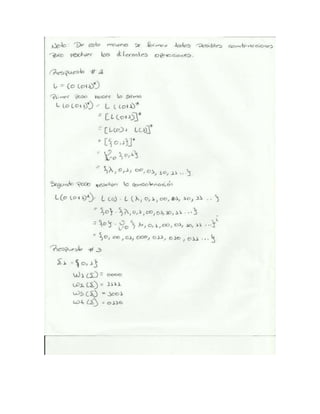 Nota: De esta manera se forman todas posibles combinaciones
para resolver las diferentes operaciones.
Respuesta # 2
L = (0 (0+1)*)
Primer paso hacer la suma
L (0 (0+1)*) = L ((0+1))*
= [L (0+1)]*
= [L(0) + L(1)]*
= [{0,1}]*
= {0,1}
= {λ, 0, 1, 00, 01, 10, 11 ... }
Segundo paso la concatenación
L(0 (0+1)*) = L(0) · L(λ, 0, 1, 00, 01, 10, 11 ... )
= {0} · {λ, 0, 1, 00, 01, 10, 11 ... }
= {0} · {λ, 0, 1, 00, 01, 10, 11 ... }
= {0, 00, 01, 000, 011, 010, 011 ... }
Respuesta # 3
Σ1 = {0, 1}
W1 (Σ) = 0000
W2 (Σ) = 1111
W3 (Σ) = 1001
W4 (Σ) = 0110